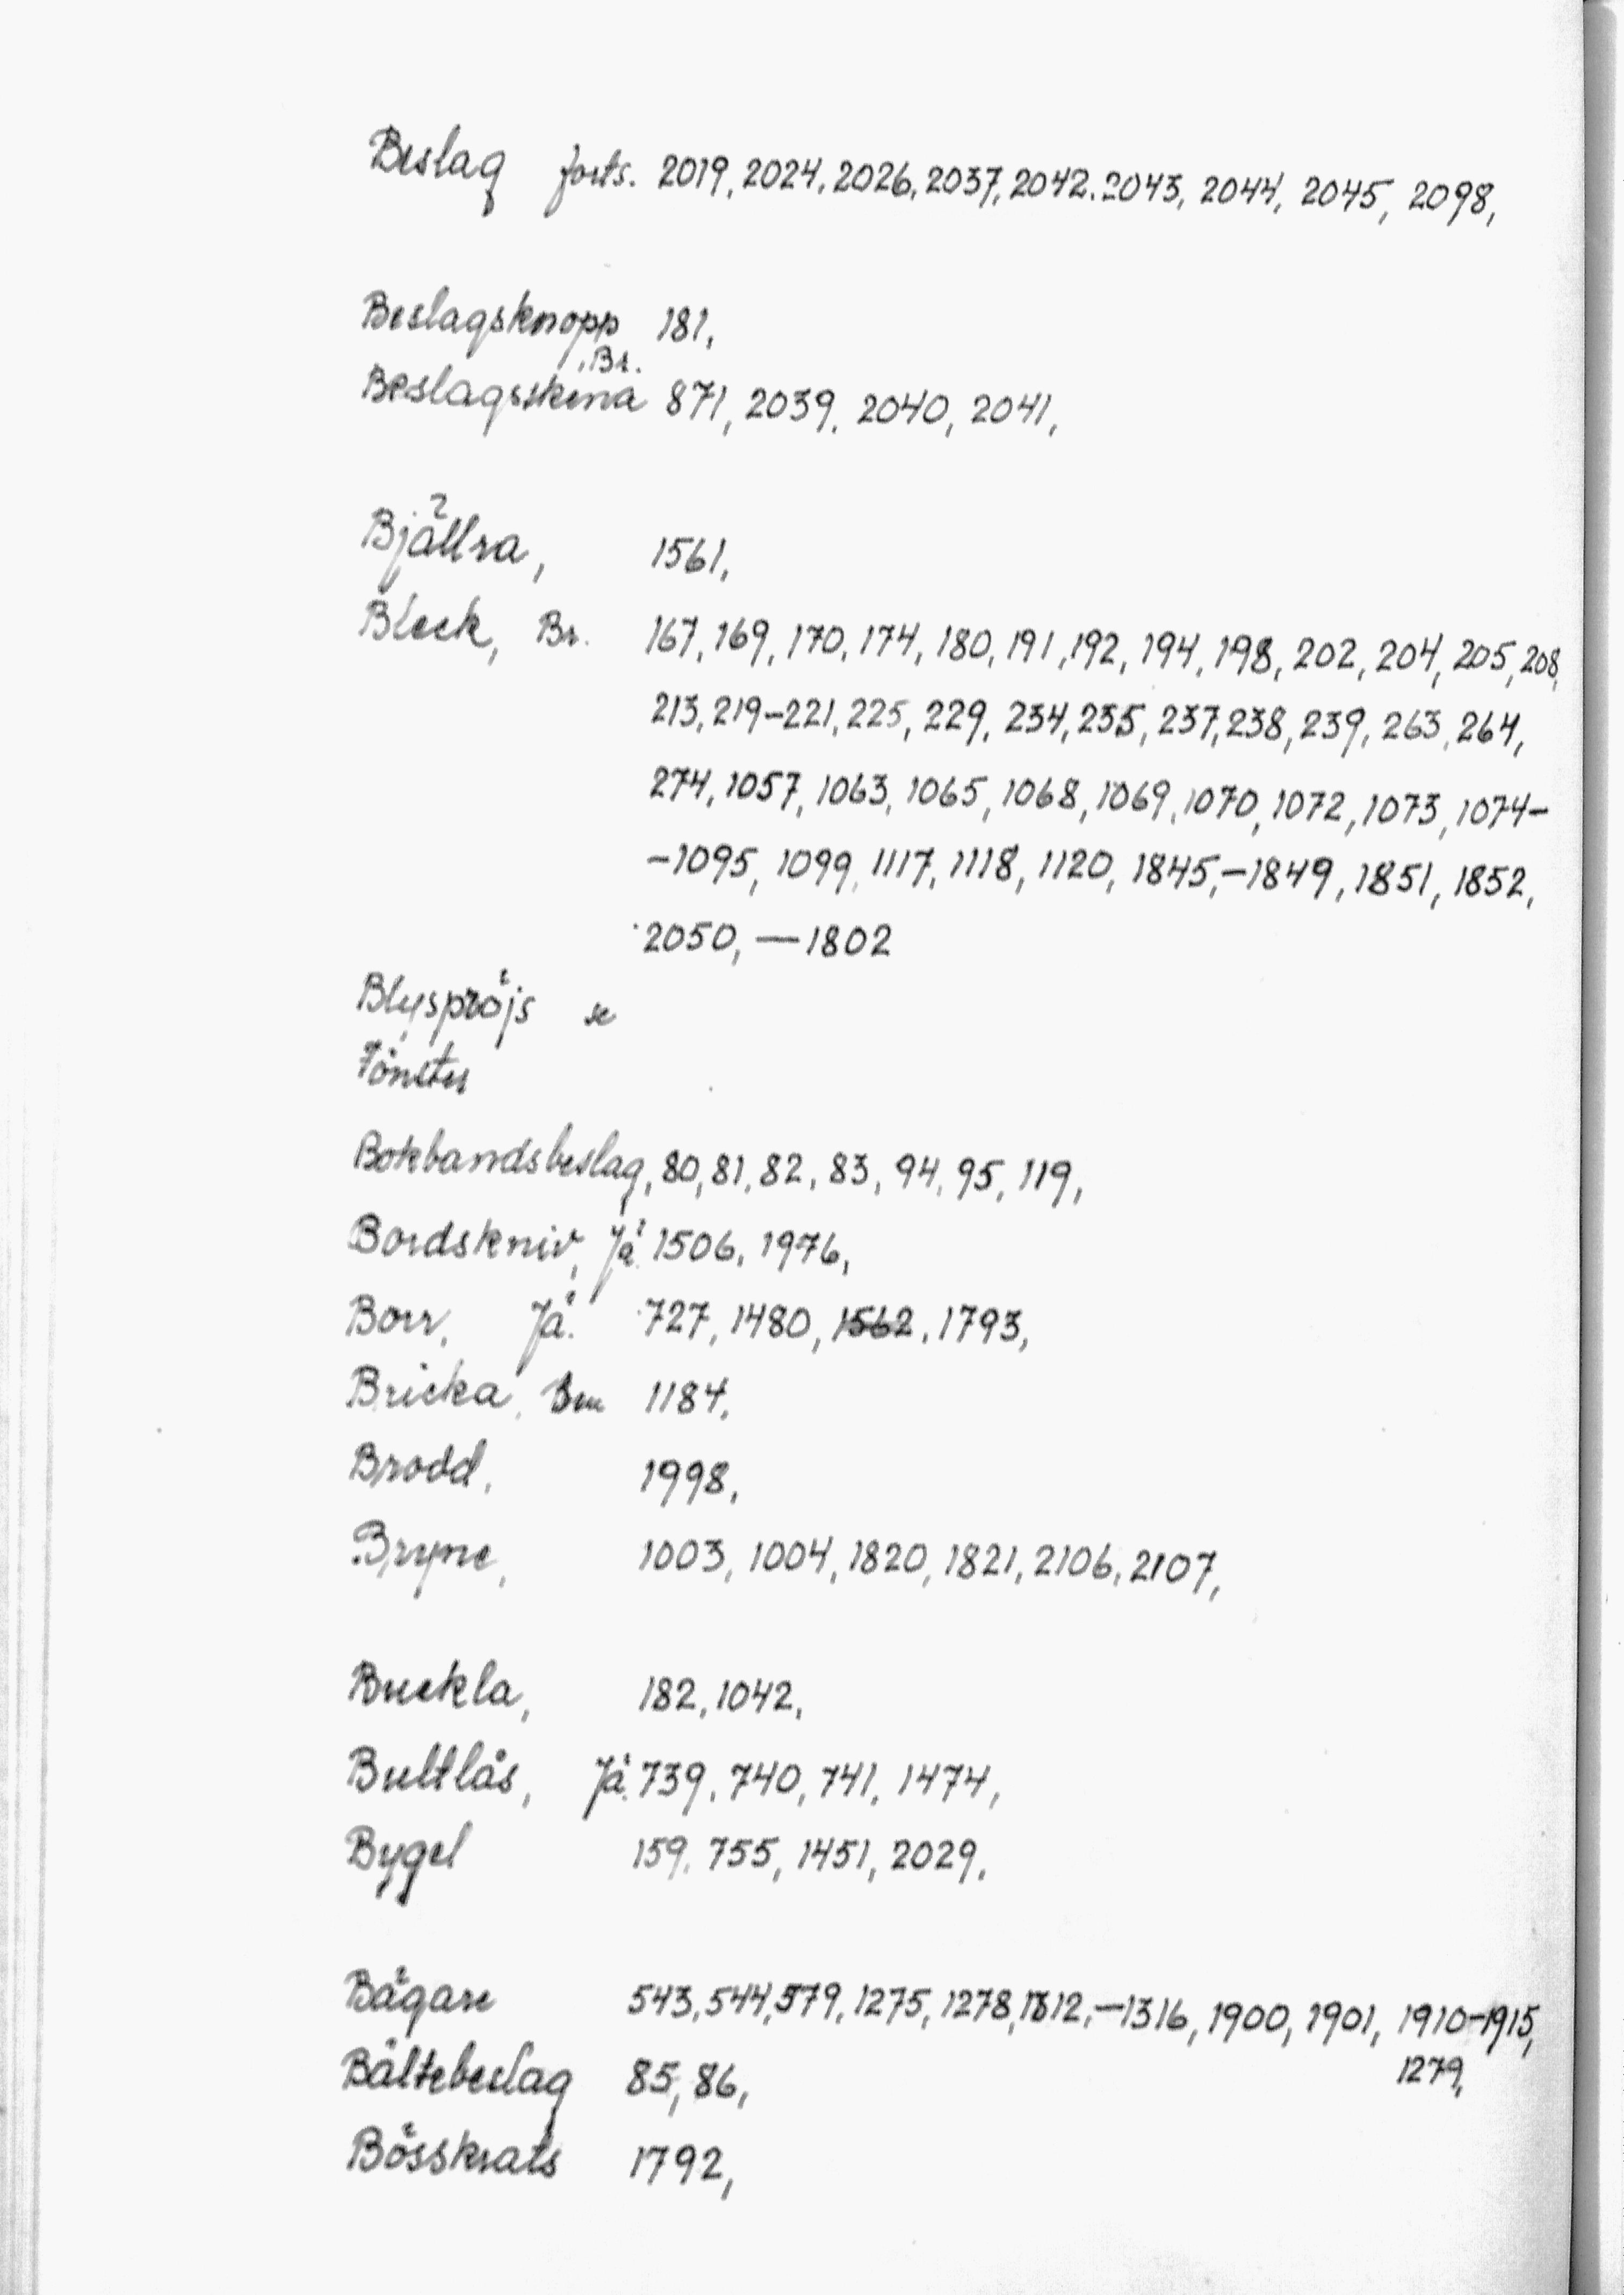 Beslag forts. 2019, 2024, 2026, 2037, 2042. 2043, 2044, 2045, 2098,
Beslagsknopp 181,
Beslagsskena, Br. 871, 2039, 2040, 2041,
Bjällra, 1561,
Bleck, Br. 167, 169, 170, 174, 180, 191, 192, 194, 198, 202, 204, 205, 208,
213, 219-221, 225, 229, 234, 235, 237, 238, 239, 263, 264,
274, 1057, 1063, 1065, 1068, 1069, 1070, 1072, 1073, 1074-
-1095, 1099, 1117, 1118, 1120, 1845,-1849, 1851, 1852,
2050, —1802
Blyspröjs se
Fönster
Bokbandsbeslag, 80, 81, 82, 83, 94, 95, 119,
Bordskniv, Jä. 1506, 1976,
Borr, Jä. 727, 1480, 1562, 1793,
Bricka, 1184,
Brodd, 1998,
Bryne, 1003, 1004, 1820, 1821, 2106, 2107,
Buckla, 182, 1042,
Bultlås, Jä. 739, 740, 741, 1474,
Bygel 159, 755, 1451, 2029,
Bägare 543, 544, 579, 1275, 1278, 1312,-1316, 1900, 1901, 1910-1915,
1279,
Bältebeslag 85, 86,
Bösskrats 1792,